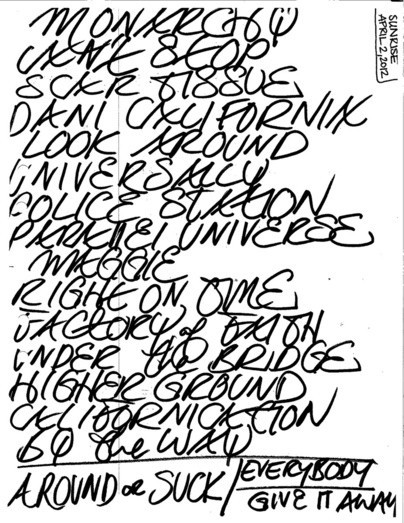 SUNRISE
APRIL 2, 2012
MONARCHY
CAN'T STOP
SCAR TISSUE
DANI CALIFORNIA
LOOK AROUND
UNIVERSALLY
POLICE STATION
PARALLEL UNIVERSE
MAGGIE
RIGHT ON TIME
FACTORY of FAITH
UNDER the BRIDGE
HIGHER GROUND
CALIFORNICATION
BY the WAY
AROUND or SUCK / EVERYBODY
GIVE IT AWAY